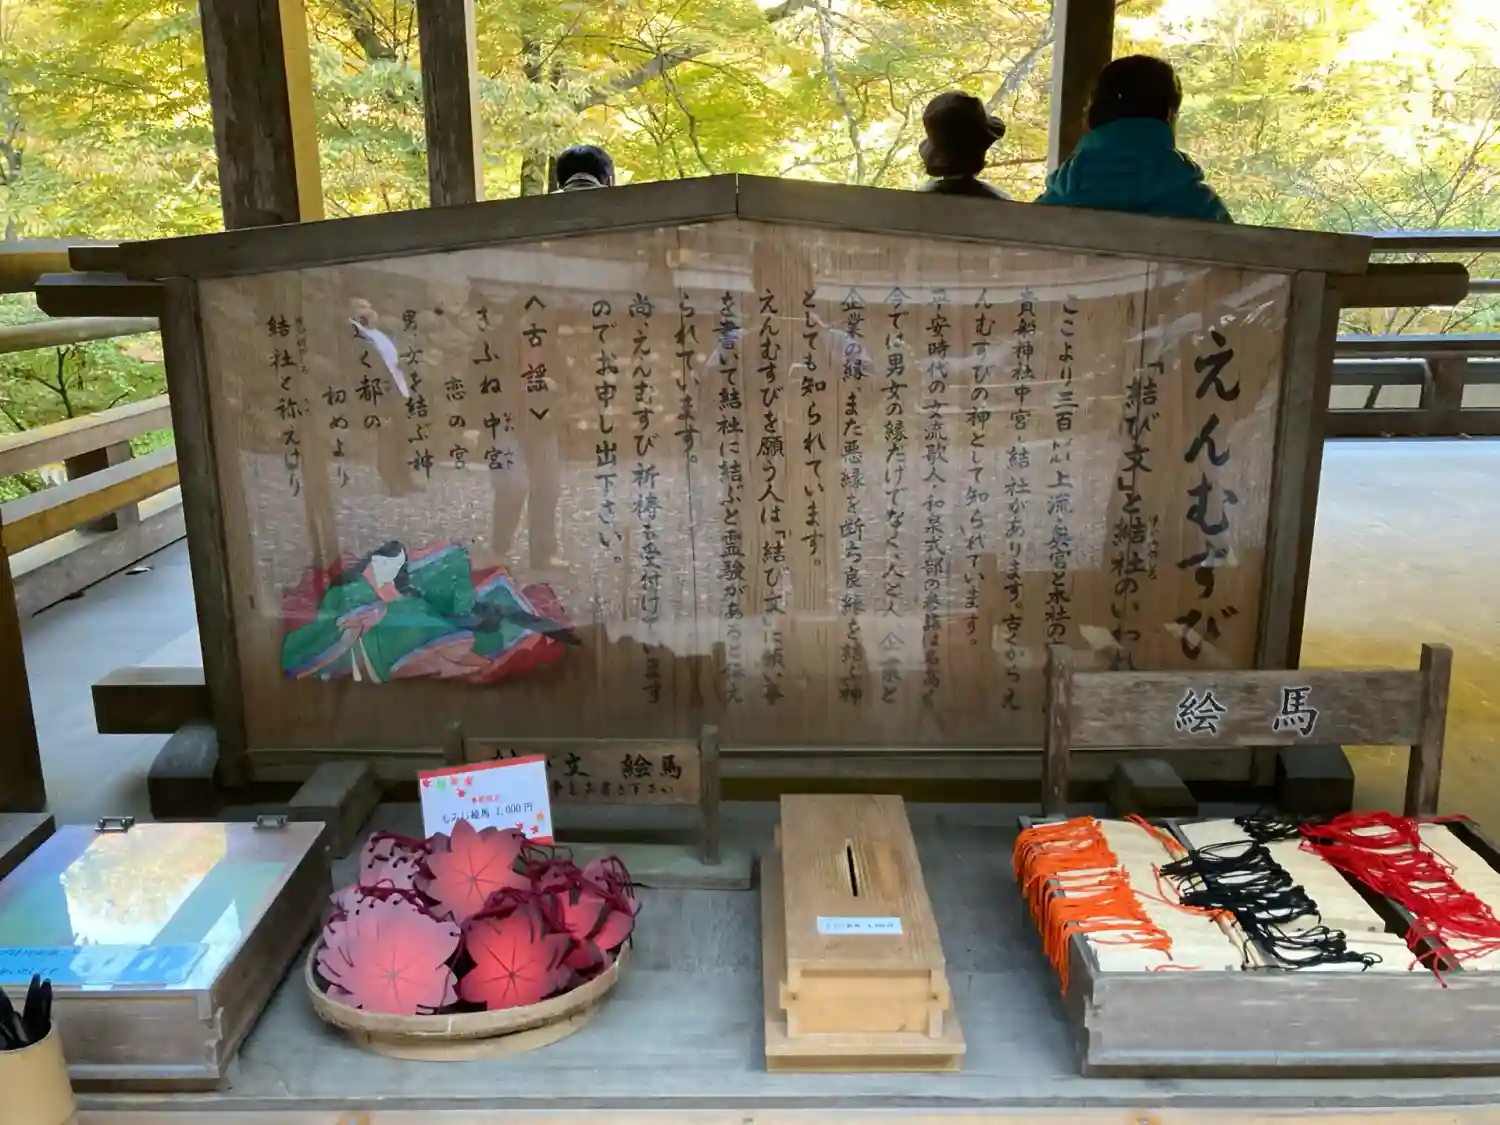 えんむすび
「結び文」と結社のいわれ
ここより三百㍍上流に奥宮と本社の
貴船神社中宮・結社があります。古くからえ
んむすびの神として知られています。
平安時代の女流歌人・和泉式部の参詣は名高く
今では男女の縁だけでなく、人と人、企業と
企業の縁、また悪縁を断ち良縁を結ぶ神
としても知られています。
えんむすびを願う人は「結び文」に願い事
を書いて結社に結ぶと霊験があると伝え
られています。
尚、えんむすび祈祷も受付けています
のでお申し出下さい。
<古謡>
きふね中宮
恋の宮
男女を結ぶ神
く都の
初めより
結社と称えけり
絵馬
文 絵馬
お書き下さい
もみじ絵馬 1,000円